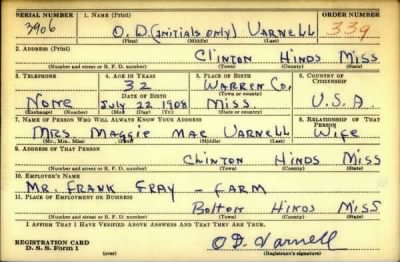 SERIAL NUMBER 1. NAME (Print) ORDER NUMBER
3906 O. D. (INITIALS ONLY) VARNELL 339
(First) (Middle) (Last)
2. ADDRESS (Print)
CLINTON HINDS MISS
(Number and street or R. F. D. number) (Town) (County) (State)
3. TELEPHONE 4. AGE IN YEARS 5. PLACE OF BIRTH 6. COUNTRY OF CITIZENSHIP
32 WARREN CO.
DATE OF BIRTH (Town or county)
NONE JULY 22 1908 MISS. U.S.A.
(Exchange) (Number) (Mo.) (Day) (Yr.) (State or country)
7. NAME OF PERSON WHO WILL ALWAYS KNOW YOUR ADDRESS 8. RELATIONSHIP OF THAT PERSON
MRS. MAGGIE MAE VARNELL WIFE
(Mr., Mrs., Miss) (First) (Middle) (Last)
9. ADDRESS OF THAT PERSON
CLINTON HINDS MISS
(Number and street or R. F. D. number) (Town) (County) (State)
10. EMPLOYER'S NAME
MR. FRANK GRAY - FARM
11. PLACE OF EMPLOYMENT OR BUSINESS
BOLTON HINDS MISS
(Number and street or R. F. D. number) (Town) (County) (State)
I AFFIRM THAT I HAVE VERIFIED ABOVE ANSWERS AND THAT THEY ARE TRUE.
O D. Varnell
REGISTRATION CARD
D. S. S. Form 1 (over) (Registrant's signature)